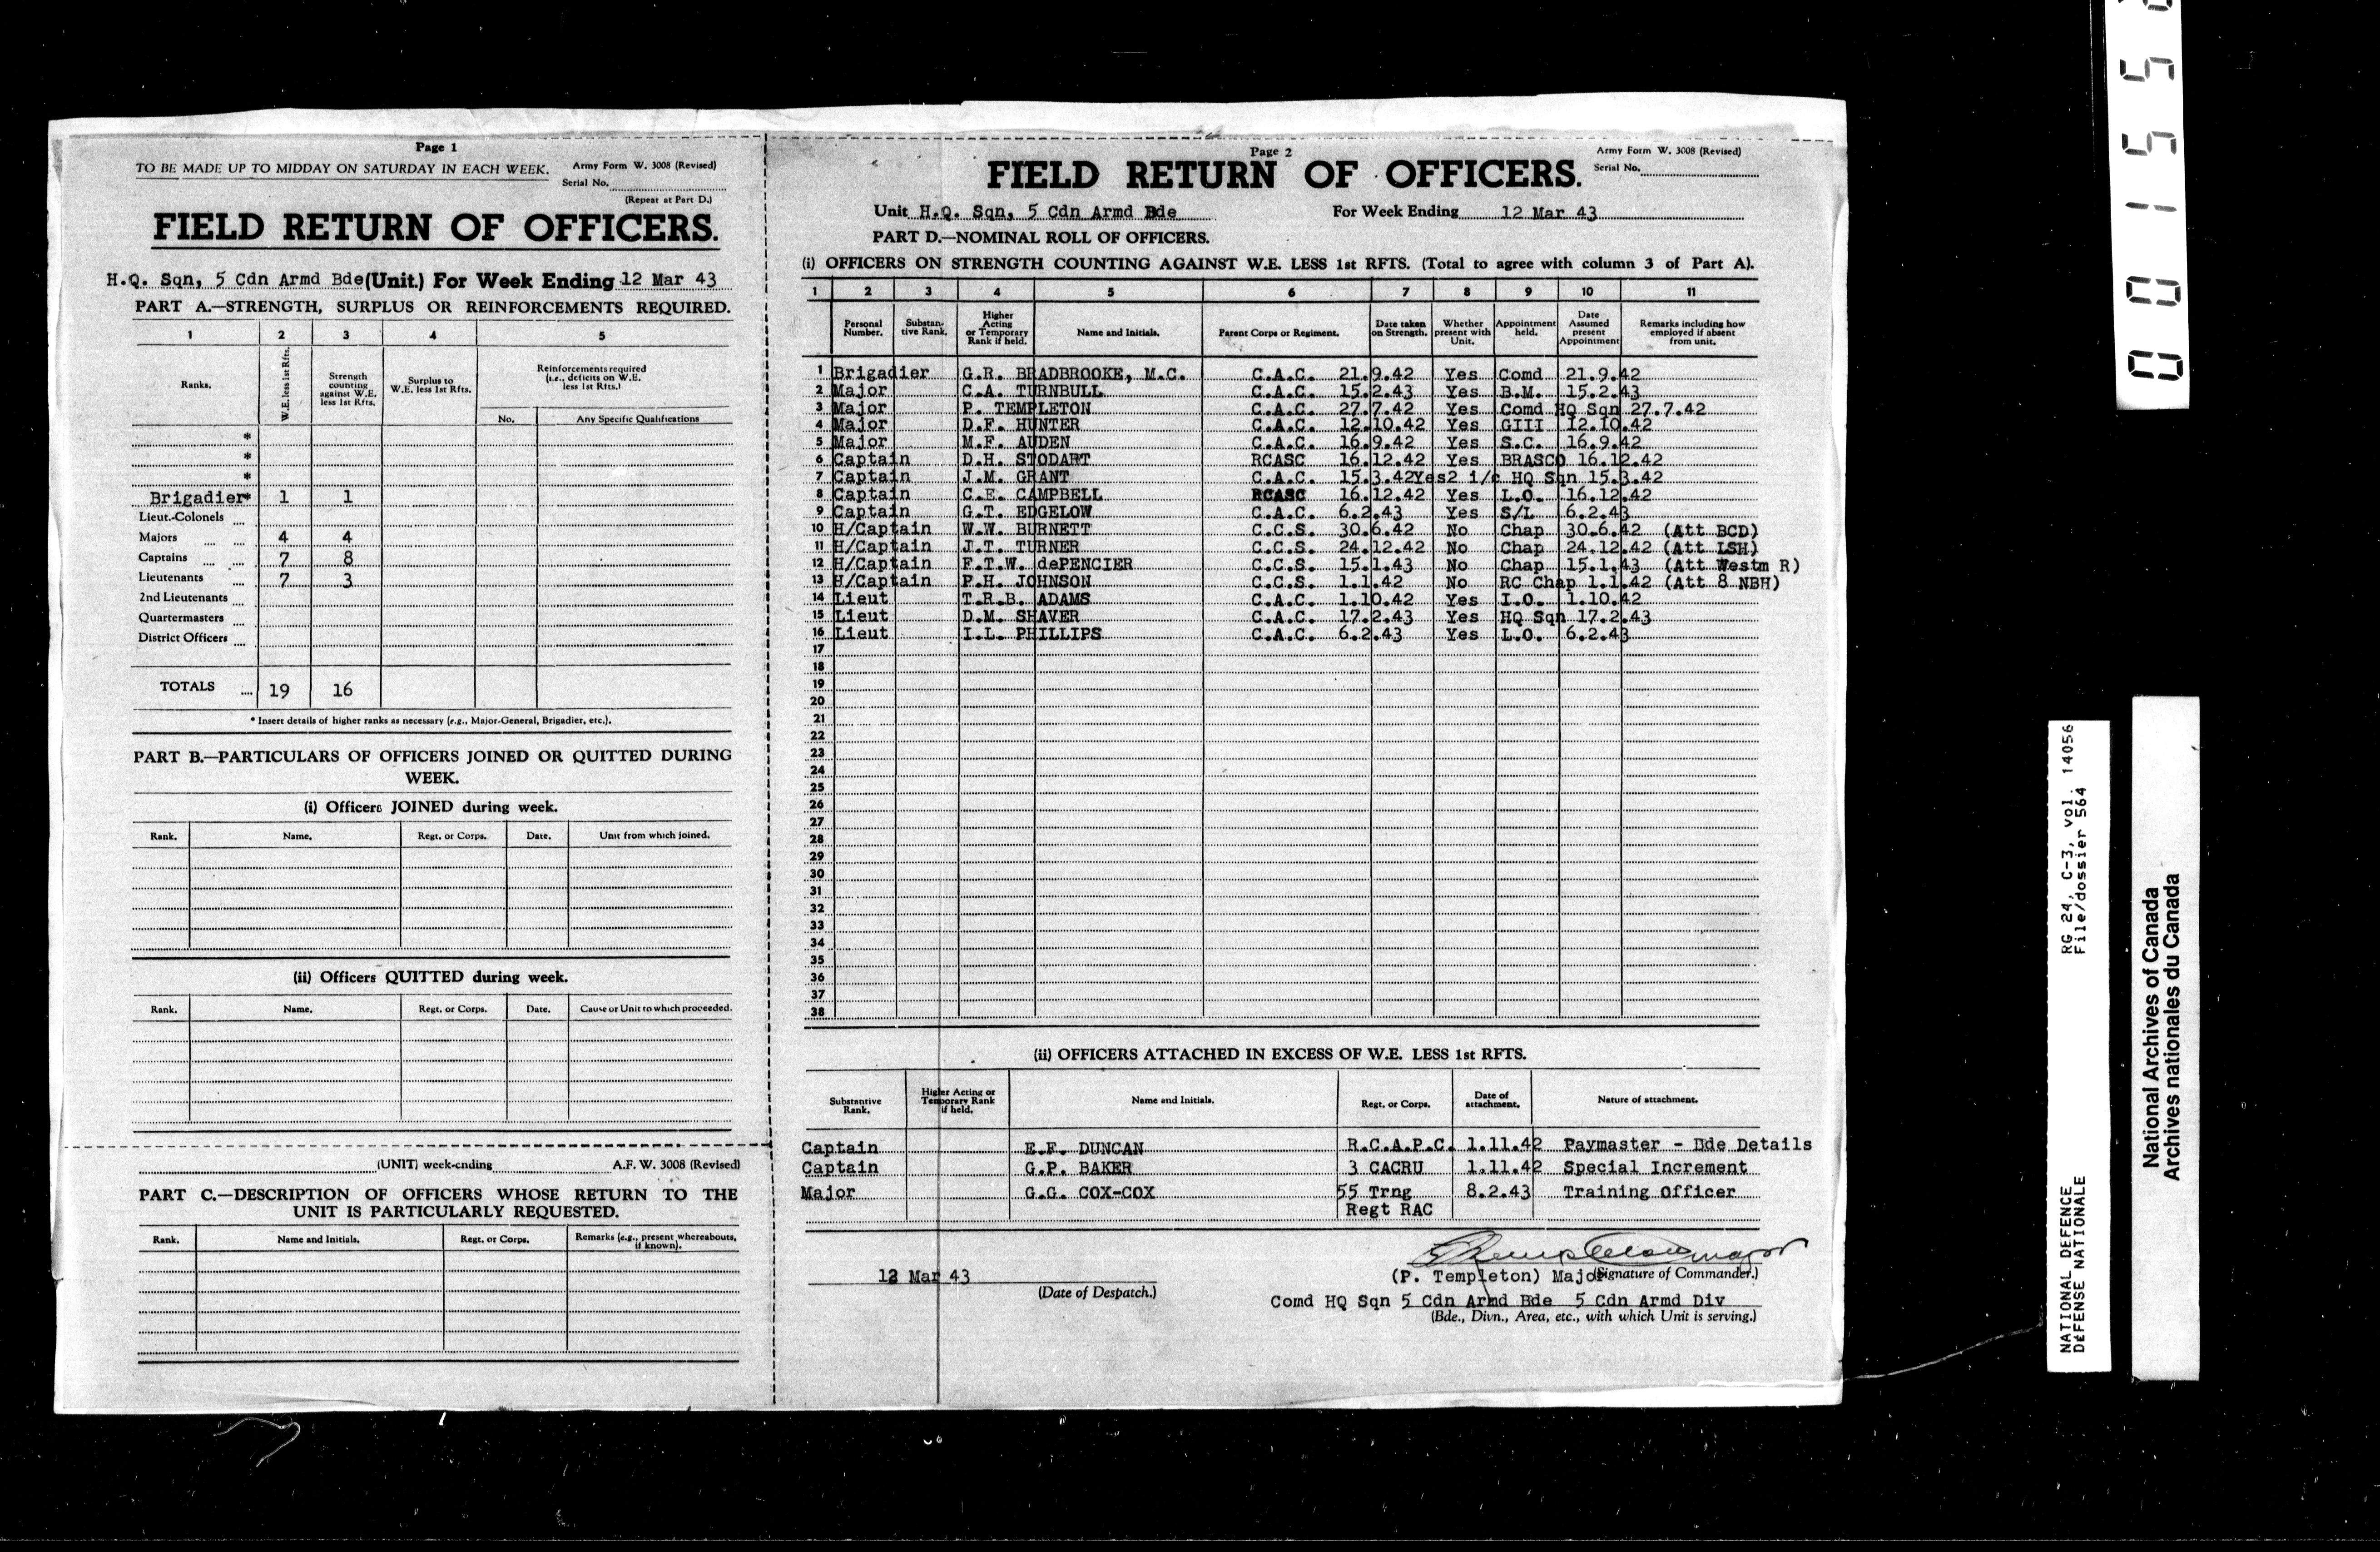 Page 1
TO BE MADE UP TO MIDDAY ON SATURDAY IN EACH WEEK. Army Form W. 3008 (Revised)
Serial No.
(Repeat at Part D.)
FIELD RETURN OF OFFICERS.
H.Q. Sqn, 5 Cdn Armd Bde (Unit.) For Week Ending 12 Mar 43
PART A.—STRENGTH, SURPLUS OR REINFORCEMENTS REQUIRED.
1 2 3 4 5
Ranks. W.E. less 1st Rfts. Strength counting against W.E. less 1st Rfts. Surplus to W.E. less 1st Rfts. Reinforcements required (i.e., deficits on W.E. less 1st Rfts.)
No. Any Specific Qualifications
*
*
*
Brigadier* 1 1
Lieut.-Colonels ....
Majors .... .... 4 4
Captains .... .... 7 8
Lieutenants .... 7 3
2nd Lieutenants ....
Quartermasters ....
District Officers ....
TOTALS .... 19 16
* Insert details of higher ranks as necessary (e.g., Major-General, Brigadier, etc.).
PART B.—PARTICULARS OF OFFICERS JOINED OR QUITTED DURING
WEEK.
(i) Officers JOINED during week.
Rank. Name. Regt. or Corps. Date. Unit from which joined.
(ii) Officers QUITTED during week.
Rank. Name. Regt. or Corps. Date. Cause or Unit to which proceeded.
(UNIT) week-ending A.F. W. 3008 (Revised)
PART C.—DESCRIPTION OF OFFICERS WHOSE RETURN TO THE
UNIT IS PARTICULARLY REQUESTED.
Rank. Name and Initials. Regt. or Corps. Remarks (e.g., present whereabouts, if known).
Page 2
Army Form W. 3008 (Revised)
FIELD RETURN OF OFFICERS. Serial No.
Unit H.Q. Sqn, 5 Cdn Armd Bde For Week Ending 12 Mar 43
PART D.—NOMINAL ROLL OF OFFICERS.
(i) OFFICERS ON STRENGTH COUNTING AGAINST W.E. LESS 1st RFTS. (Total to agree with column 3 of Part A).
1 2 3 4 5 6 7 8 9 10 11
Personal Number. Substantive Rank. Higher Acting or Temporary Rank if held. Name and Initials. Parent Corps or Regiment. Date taken on Strength. Whether present with Unit. Appointment held. Date Assumed present Appointment Remarks including how employed if absent from unit.
1 Brigadier G.R. BRADBROOKE, M.C. C.A.C. 21.9.42 Yes Comd 21.9.42
2 Major C.A. TURNBULL C.A.C. 15.2.43 Yes B.M. 15.2.43
3 Major P. TEMPLETON C.A.C. 27.7.42 Yes Comd HQ Sqn 27.7.42
4 Major D.F. HUNTER C.A.C. 12.10.42 Yes GIII 12.10.42
5 Major M.F. AUDEN C.A.C. 16.9.42 Yes S.C. 16.9.42
6 Captain D.H. STODART RCASC 16.12.42 Yes BRASCO 16.12.42
7 Captain J.M. GRANT C.A.C. 15.3.42 Yes 2 i/c HQ Sqn 15.3.42
8 Captain C.E. CAMPBELL RCASC 16.12.42 Yes L.O. 16.12.42
9 Captain G.T. EDGELOW C.A.C. 6.2.43 Yes S/L 6.2.43
10 H/Captain W.W. BURNETT C.C.S. 30.6.42 No Chap 30.6.42 (Att BCD)
11 H/Captain J.T. TURNER C.C.S. 24.12.42 No Chap 24.12.42 (Att LSH)
12 H/Captain F.T.W. dePENCIER C.C.S. 15.1.43 No Chap 15.1.43 (Att Westm R)
13 H/Captain P.H. JOHNSON C.C.S. 1.1.42 No RC Chap 1.1.42 (Att 8 NBH)
14 Lieut T.R.B. ADAMS C.A.C. 1.10.42 Yes I.O. 1.10.42
15 Lieut D.M. SHAVER C.A.C. 17.2.43 Yes HQ Sqn 17.2.43
16 Lieut I.L. PHILLIPS C.A.C. 6.2.43 Yes L.O. 6.2.43
17
18
19
20
21
22
23
24
25
26
27
28
29
30
31
32
33
34
35
36
37
38
(ii) OFFICERS ATTACHED IN EXCESS OF W.E. LESS 1st RFTS.
Substantive Rank. Higher Acting or Temporary Rank if held. Name and Initials. Regt. or Corps. Date of attachment. Nature of attachment.
Captain E.F. DUNCAN R.C.A.P.C. 1.11.42 Paymaster - Bde Details
Captain G.P. BAKER 3 CACRU 1.11.42 Special Increment
Major G.G. COX-COX 55 Trng 8.2.43 Training Officer
Regt RAC
PTempleton major
12 Mar 43 (P. Templeton) Major (Signature of Commander.)
(Date of Despatch.)
Comd HQ Sqn 5 Cdn Armd Bde 5 Cdn Armd Div
(Bde., Divn., Area, etc., with which Unit is serving.)
NATIONAL DEFENCE RG 24, C-3, vol. 14056
DÉFENSE NATIONALE File/dossier 564
National Archives of Canada
Archives nationales du Canada